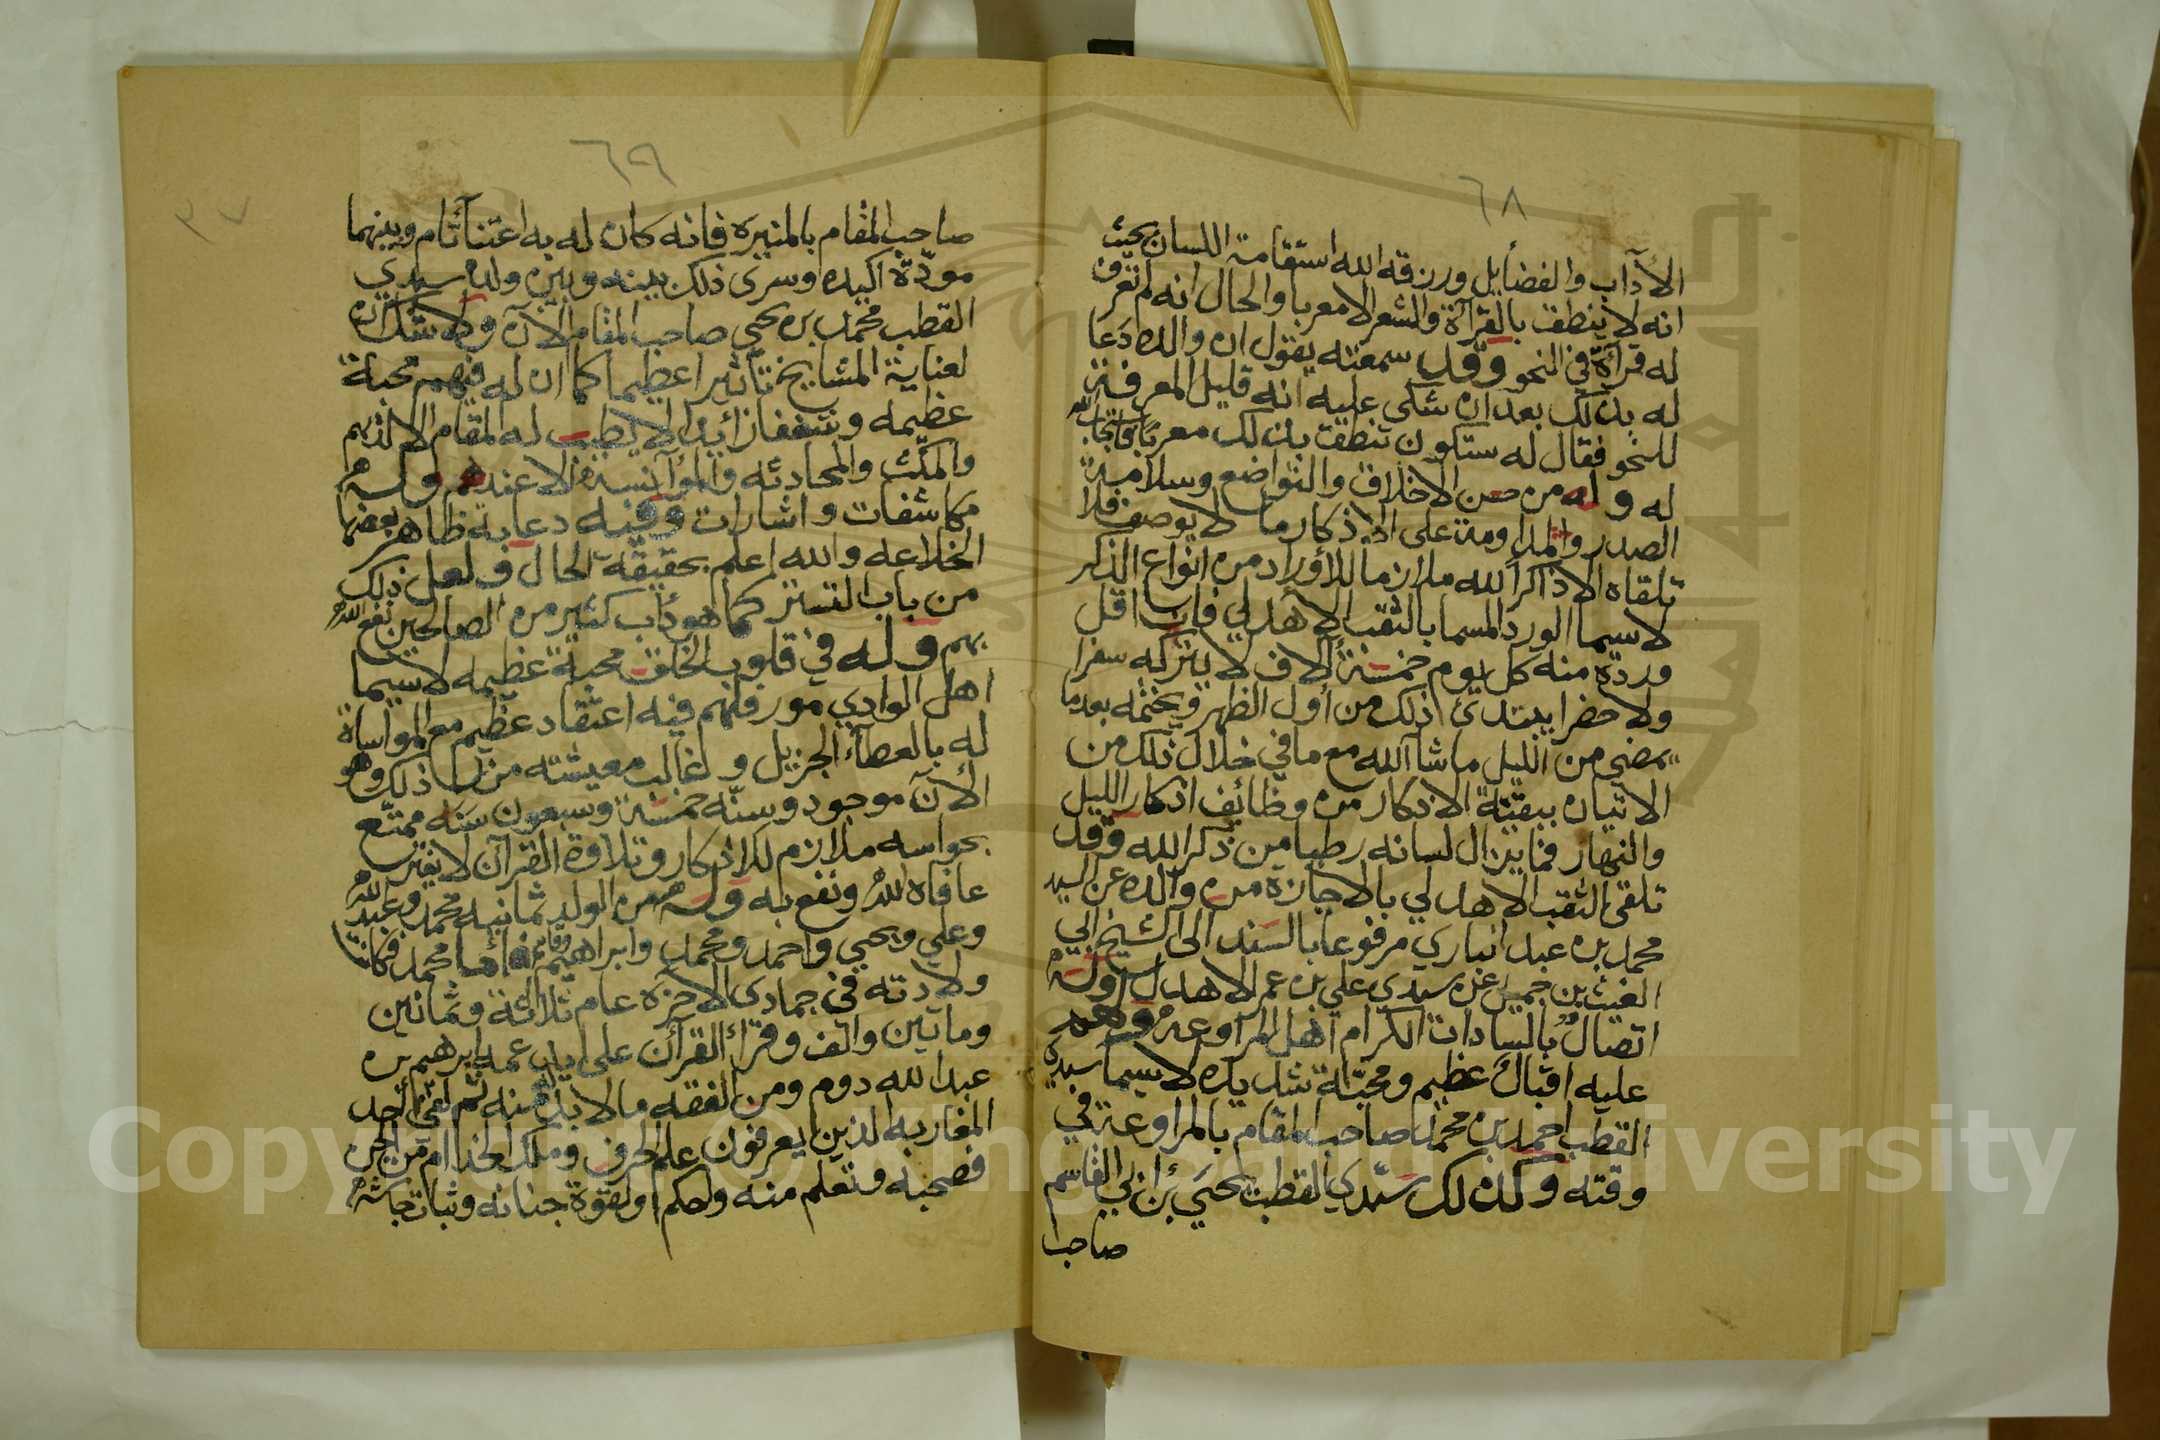 ٦٨
الاۤداب والفضأيل ورزقه الله استقامة اللسان بحيث
انه لا ينطق بالقرآة والشعر الا معربا والحال انه لم تعرف
له قرأة في النحو وقد سمعته يقول ان والده دعا
له بذلك بعد ان شكى عليه انه قليل المعرفة
للنحو فقال له ستكون تنطق بذلك معربا فاستجاب الله
له وله من حسن الاخلاق والتواضع وسلامة
الصدر والمداومة على الاذكار ما لا يوصف فلا
تلقاه الا ذاكرا لله ملازما للأوراد من انواع الذكر
لا سيما الورد المسما بالثقب الاهدلي فان اقل
ورده منه كل يوم خمسة الاف لا يتركه سفرا
ولا حضرا يبتدئ ذلك من أول الظهر ويختمه بعد ما
يمضي من الليل ما شاآلله مع ما في خلال ذلك من
الاتيان ببقية الاذكار من وظائف اذكار الليل
والنهار فما يزال لسانه رطبا من ذكر الله وقد
تلقى الثقب الاهدلي بالاجازة من والده عن السيد
محمد بن عبد انباري مرفوعا بالسند الى الشيخ ابي
الغيث بن جميل عن سيدي علي بن عمر الاهدل وله
اتصال بالسادات الكرام اهل المراوعه ولهم
عليه اقبال عظيم ومحبة شديده لا سيما سيدي
القطب احمد بن محمد صاحب المقام بالمراوعة في
وقته وكذلك سيدي القطب يحيى بن ابي القاسم
صاحب
٦٩
٣٧
صاحب المقام بالمنيره فانه كان له به اعتنآ تام وبينهما
مودّة اكيده وسرى ذلك بينه وبين ولده سيدي
القطب محمد بن يحيى صاحب المقام الآن ولا شك ان
لعناية المشايخ تأثيرا عظيما كما ان له فيهم محبة
عظيمه وشغفا زأيدا لا يطيب له المقام الا لديهم
والمكث والمحادثه والمؤانسة الا عندهم وله
مكاشفات واشارات وفيه دعابة ظاهر بعضها
الخلاعه والله اعلم بحقيقة الحال ولعل ذلك
من باب التستر كما هو دأب كثير من الصالحين نفع الله
بهم وله في قلوب الخلق محبة عظيمه لا سيما
اهل الوادي مور فلهم فيه اعتقاد عظيم مع المواساة
له بالعطأ الجزيل وغالب معيشته من ذلك وهو
الآن موجود وسنّه خمسة وسبعون سنه ممتّع
بحواسه ملازم للاذكار وتلاوة القرآن لا يغير
عافاه الله ونفع به وله من الولد ثمانيه محمد وعبد الله
وعلي ويحيى واحمد ومحمد وابراهيم فأما محمد فكانت
ولادته في جمادى الاخره عام ثلاثة وثمانين
ومأتين والف وقرأ القرآن على يد عمه ابرهيم بن
عبد الله دوم ومن الفقه ما لا بد منه ثم لقي أحد
المغاربه الذين يعرفون علم الحرف وملك الخدام من الجن
فصحبه وتعلم منه ولحكم ولقوة جنانه وثبات جاشه